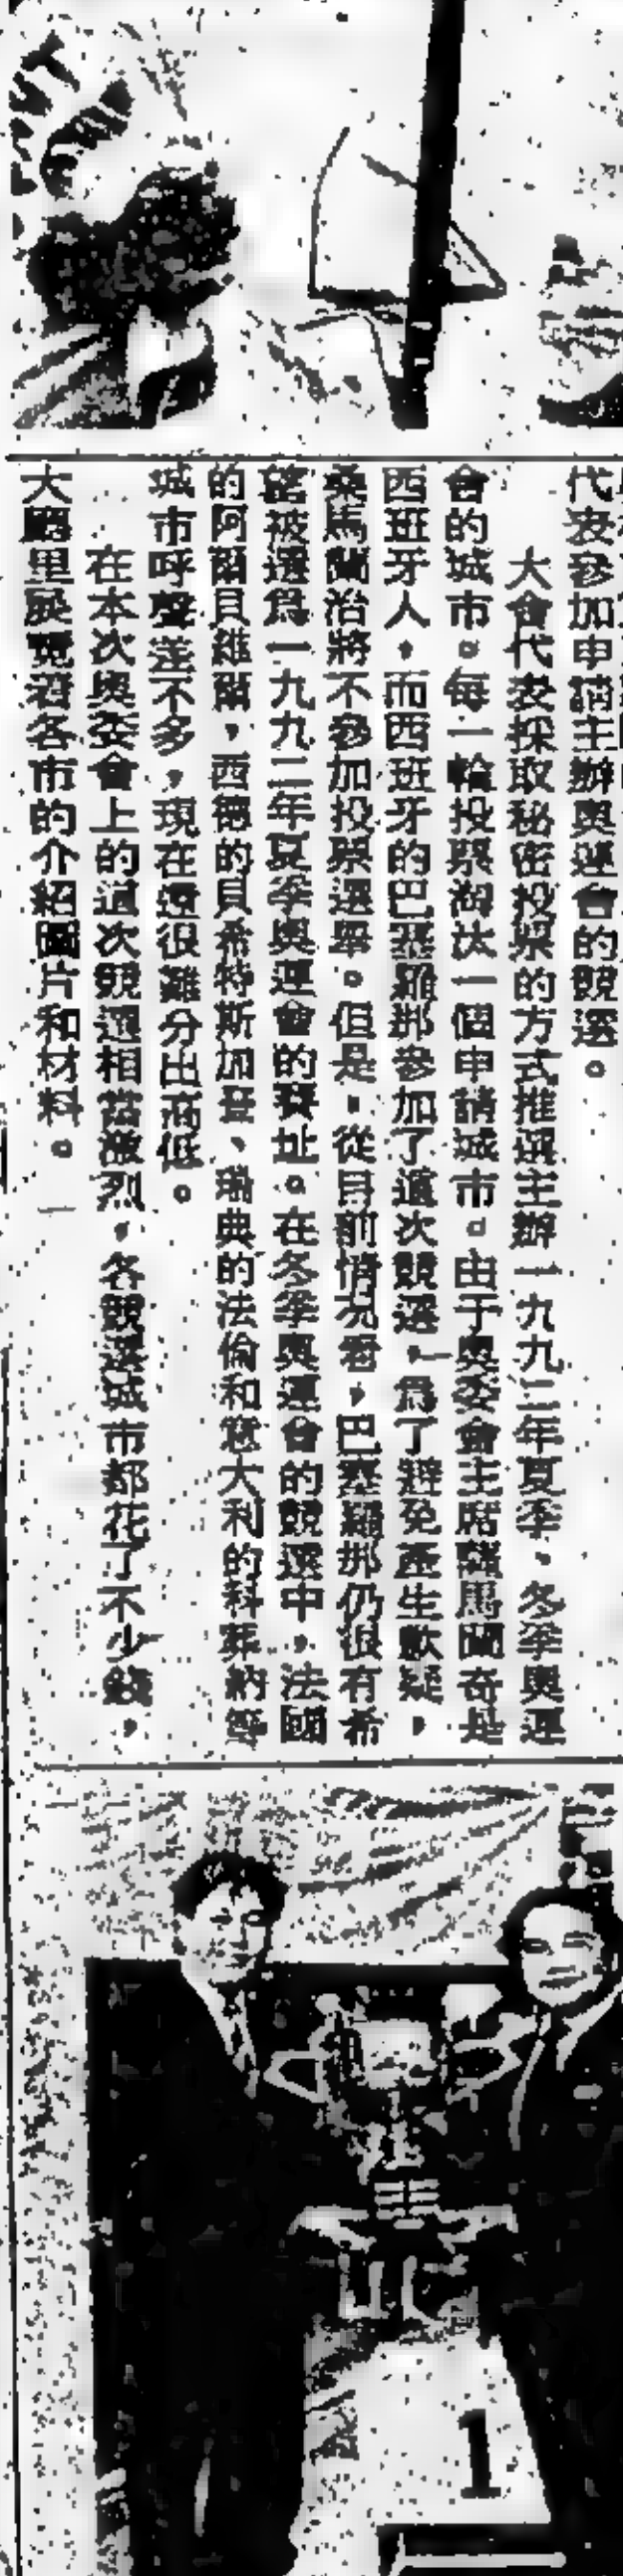 代表參加申請主辦奧運會的競選。
大會代表採取秘密投票的方式推選主辦一九九二年夏季、冬季奧運
會的城市。每一輪投票淘汰一個申請城市。由于奧委會主席薩馬蘭奇是
西班牙人，而西班牙的巴塞羅那參加了這次競選，為了避免產生歉疑，
桑馬蘭治將不參加投票選舉。但是，從目前情況看，巴塞羅那仍很有希
望被選為一九九二年夏季奧運會的賽址。在冬季奧運會的競選中，法國
的阿爾貝維爾，西德的貝希特斯加登、瑞典的法倫和意大利的科蒂納等
城市呼聲差不多，現在還很難分出高低。
在本次奧委會上的這次競選相當激烈，各競選城市都花了不少錢，
大廳里展覽着各市的介紹圖片和材料。
1